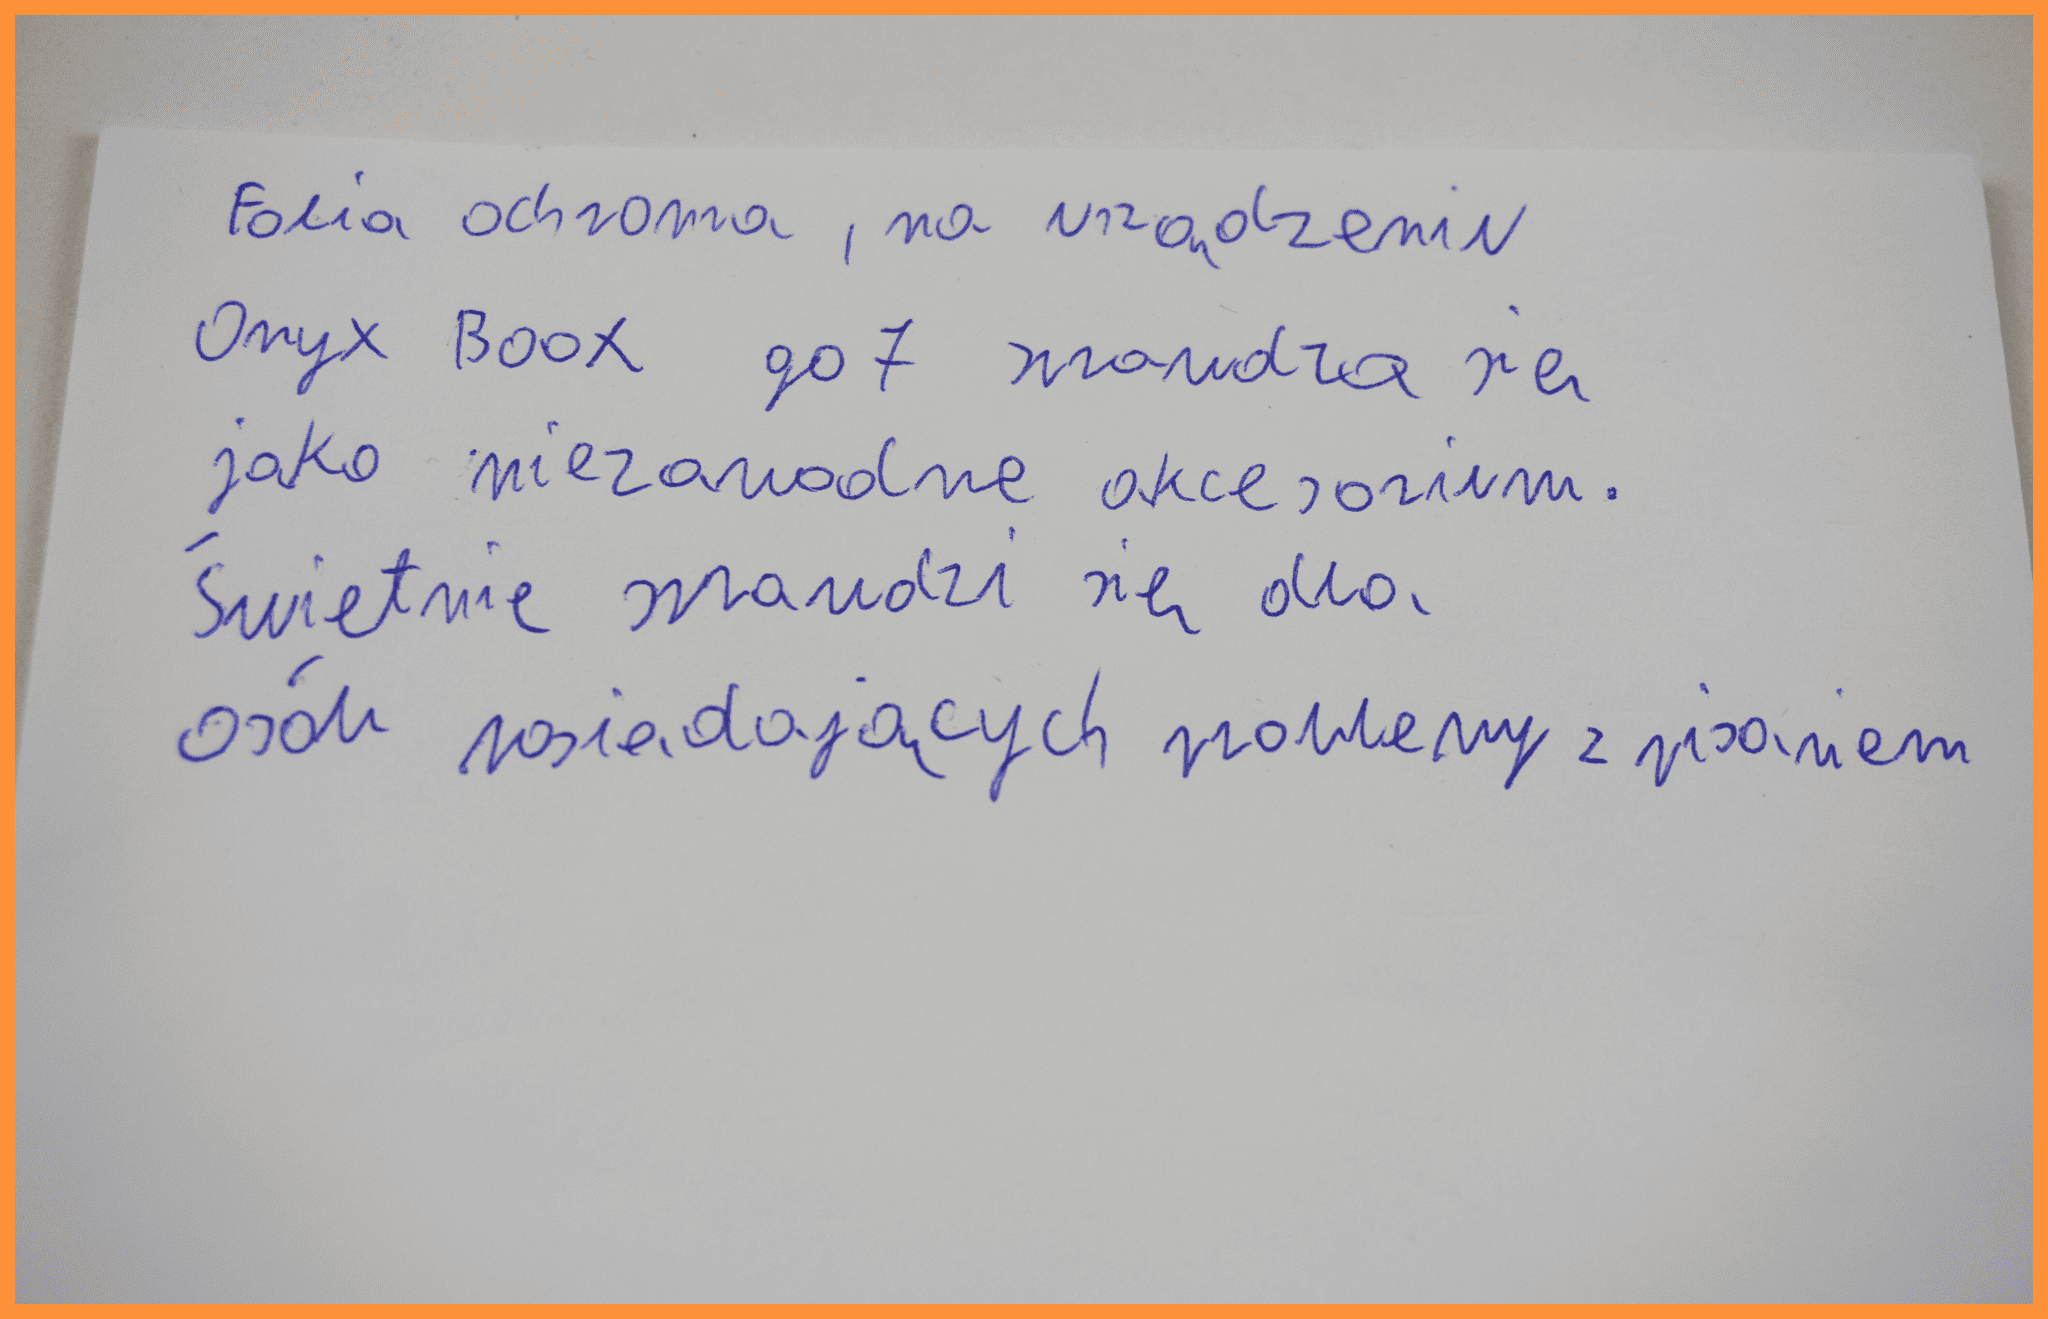 Folia ochronna, na urządzeniu
Onyx Boox go 7 sprawdza się
jako niezawodne akcesorium.
Świetnie sprawdzi się dla
osób posiadających problemy z pisaniem